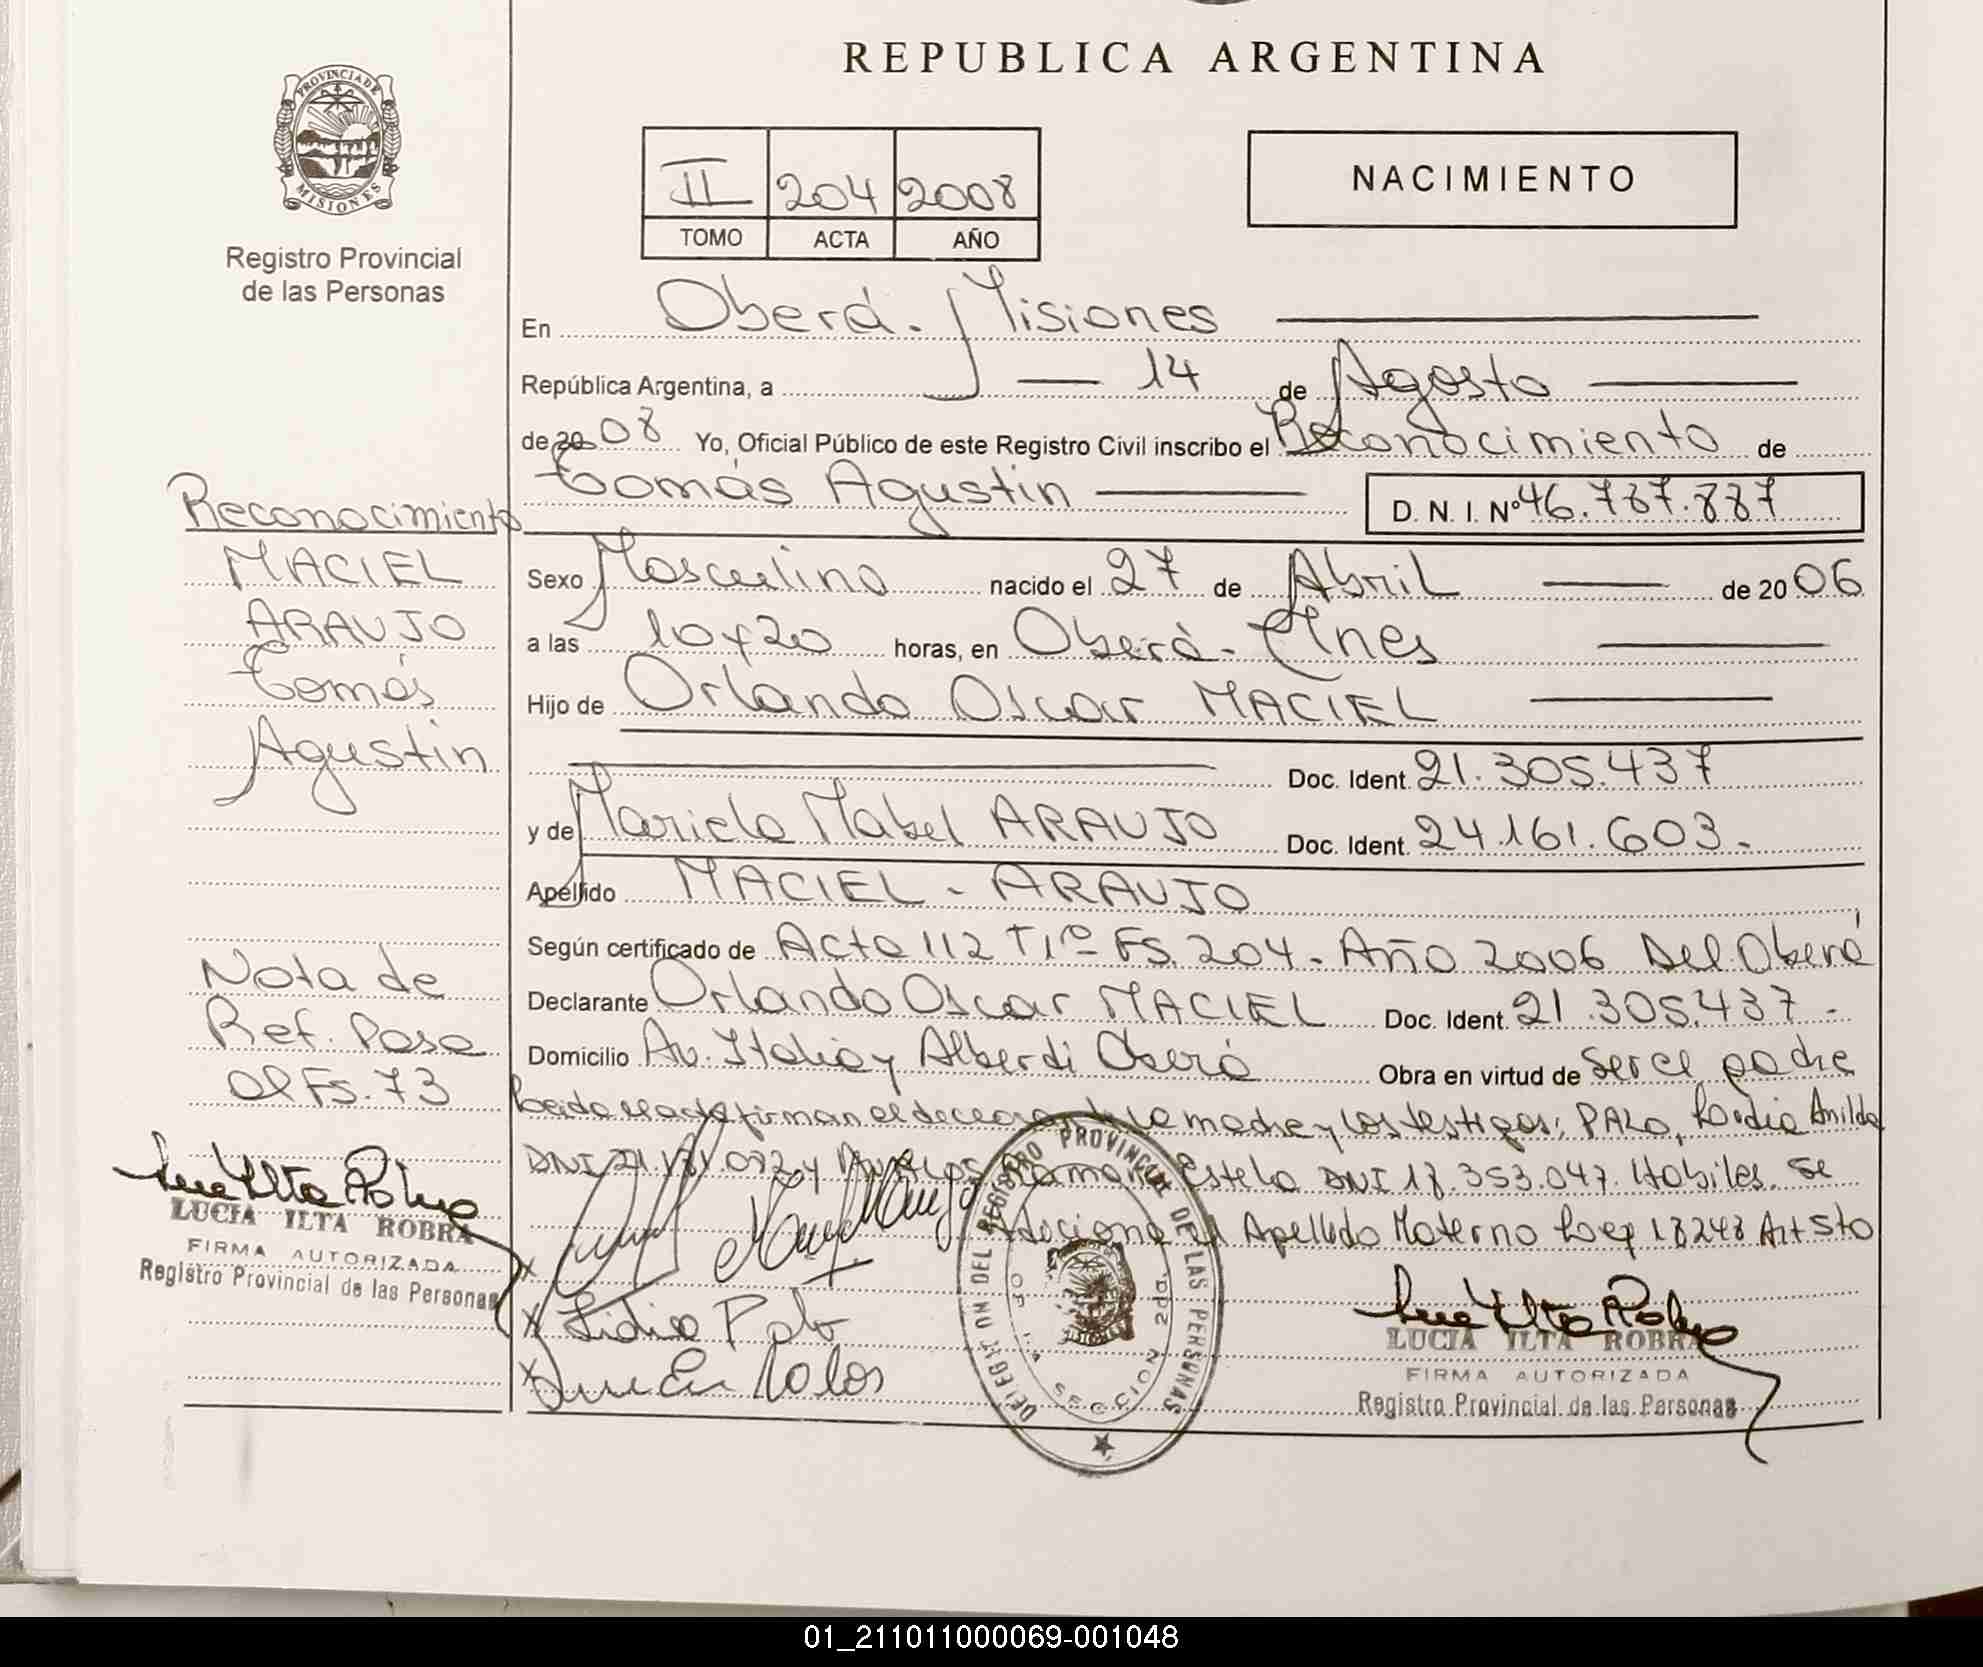 REPUBLICA ARGENTINA
PROVINCIA DE
MISIONES
Registro Provincial
de las Personas
II 204 2008
TOMO ACTA AÑO
NACIMIENTO
En Oberá. Misiones
República Argentina, a 14 de Agosto
de 2008 Yo, Oficial Público de este Registro Civil inscribo el Reconocimiento de
Tomás Agustin D. N. I. Nº 46.787.887
Sexo Masculino nacido el 27 de Abril de 2006
a las 10 y 20 horas, en Oberá - Mnes
Hijo de Orlando Oscar MACIEL
Doc. Ident. 21.305.437
y de Mariela Mabel ARAUJO Doc. Ident. 24.161.603.-
Apellido MACIEL - ARAUJO
Según certificado de Acta 112 T1º Fs. 204. Año 2006 Del Oberá
Declarante Orlando Oscar MACIEL Doc. Ident. 21.305.437 -
Domicilio Av. Italia y Alberdi Oberá Obra en virtud de Ser el padre
Leida el acta firman el la madre y los testigos: PALO, Lidia Anilda
DNI y Estela DNI 18.353.047. Habiles. Se
Adiciona el Apellido Materno Ley 18248 Art 5to
Lidia Palo
LUCIA ILTA ROBRA
FIRMA AUTORIZADA
Registro Provincial de las Personas
DELEGACION DEL REGISTRO PROVINCIAL DE LAS PERSONAS
SECCION 2da.
Reconocimiento
MACIEL
ARAUJO
Tomás
Agustin
Nota de
Ref. Pasa
al Fs. 73
LUCIA ILTA ROBRA
FIRMA AUTORIZADA
Registro Provincial de las Personas
01_211011000069-001048